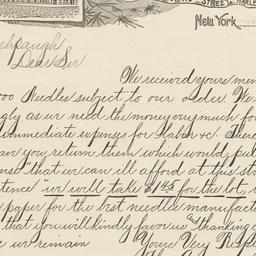 STREET & HARLEM
New York
Dear Sir
We received yours
Needles subject to our order We
as we need the money very much for
immediate expenses for Labor &c. There
you return them which would put
that we can ill afford at this
"we will take $1.45 for the lot,
paper for the best needles
that you will kindly favor us and thanking
we remain Yours Very